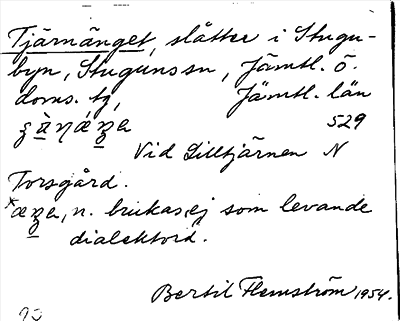 Tjärnänget, slåtter i Stugu-
byn, Stuguns sn, Jämtl. ö.
doms. tg, Jämtl. län
529
Vid Lilltjärnen N
Torsgård.
n. brukas ej som levande
dialektord.
Bertil Flemström 1954.